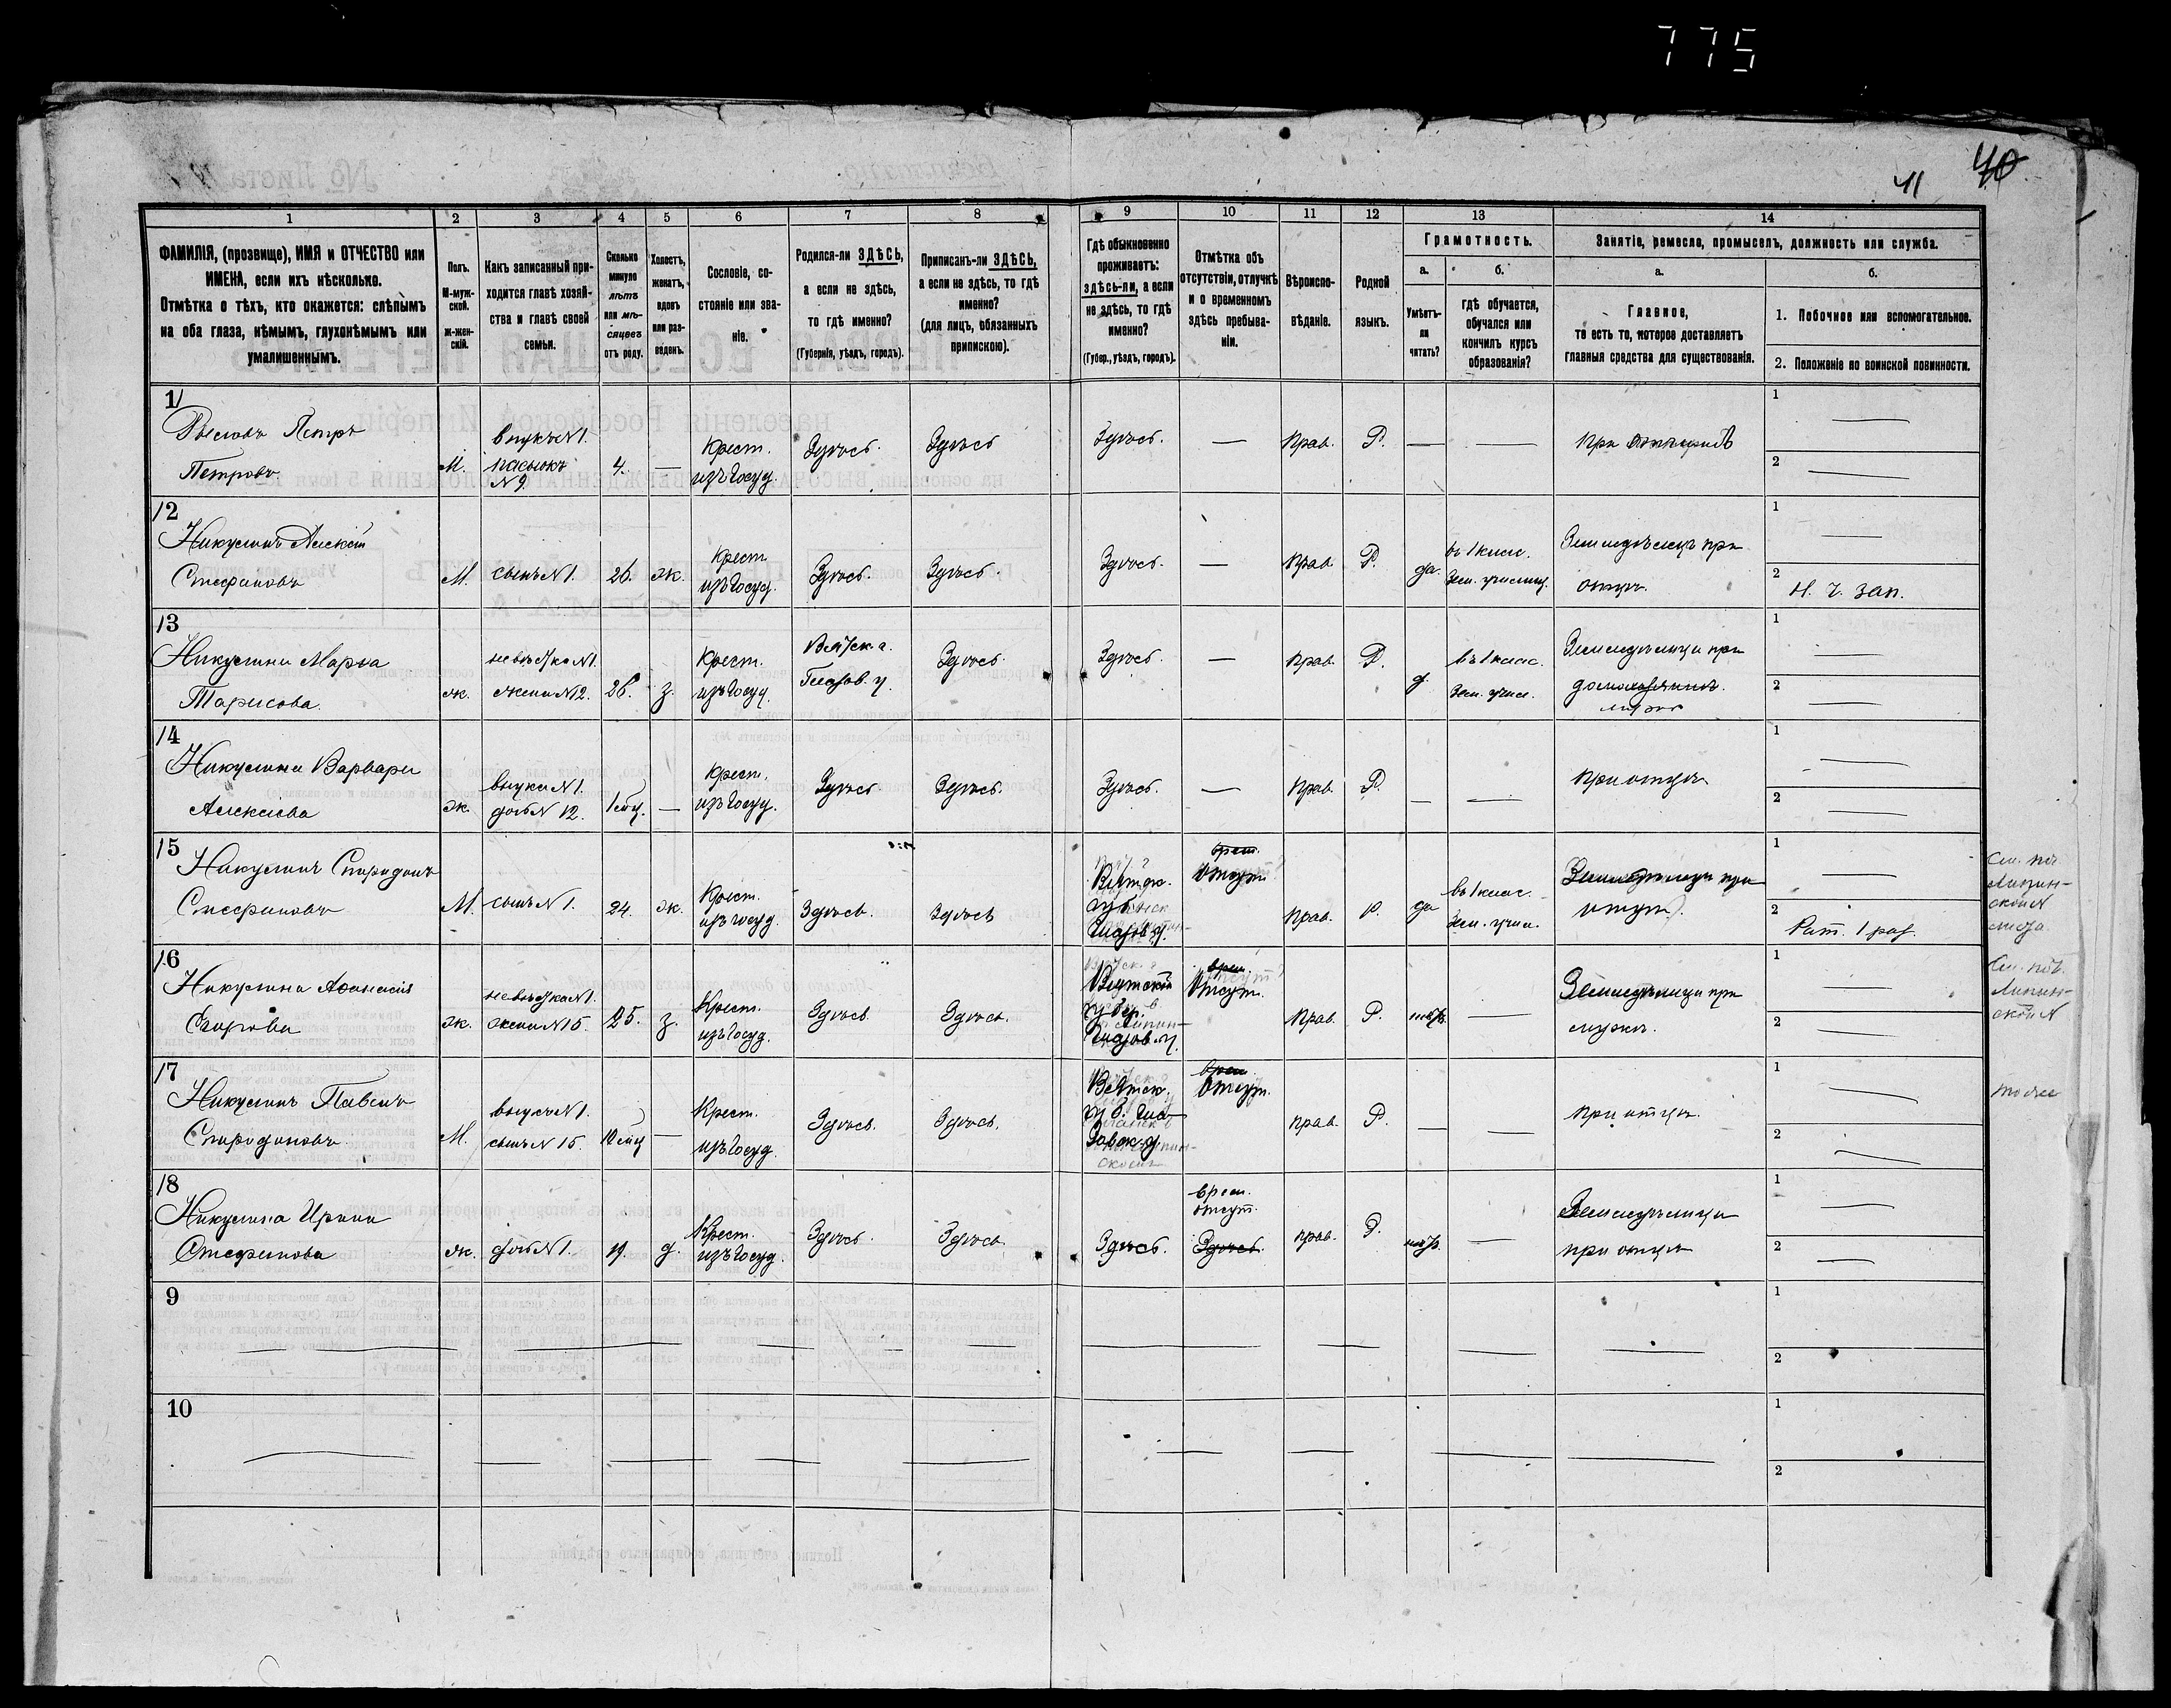 775
41 40
1 2 3 4 5 6 7 8 9 10 11 12 13 14
ФАМИЛІЯ, (прозвище), ИМЯ и ОТЧЕСТВО или
ИМЕНА, если ихъ нѣсколько.
Отмѣтка о тѣхъ, кто окажется: слѣпымъ
на оба глаза, нѣмымъ, глухонѣмымъ или
умалишеннымъ.
Полъ.
М-муж-
ской.
ж-жен-
скій.
Какъ записанный при-
ходится главѣ хозяй-
ства и главѣ своей
семьи.
Сколько
минуло
лѣтъ
или мѣ-
сяцевъ
отъ роду.
Холостъ,
женатъ,
вдовъ
или раз-
веденъ.
Сословіе, со-
стояніе или зва-
ніе.
Родился-ли ЗДѢСЬ,
а если не здѣсь,
то гдѣ именно?
(Губернія, уѣздъ, городъ).
Приписанъ-ли ЗДѢСЬ,
а если не здѣсь, то гдѣ
именно?
(для лицъ, обязанныхъ
припискою).
Гдѣ обыкновенно
проживаетъ:
здѣсь-ли, а если
не здѣсь, то гдѣ
именно?
(Губер., уѣздъ, городъ).
Отмѣтка объ
отсутствіи, отлучкѣ
и о временномъ
здѣсь пребыва-
ніи.
Вѣроиспо-
вѣданіе.
Родной
языкъ.
Грамотность.
а.
Умѣетъ-
ли
читать?
б.
гдѣ обучается,
обучался или
кончилъ курсъ
образованія?
Занятіе, ремесло, промыселъ, должность или служба.
а.
Главное,
то есть то, которое доставляетъ
главныя средства для существованія.
б.
1. Побочное или вспомогательное.
2. Положеніе по воинской повинности.
11
Петръ
Петровъ
М.
внукъ N1.
пасынокъ
N9.
4. —
Крест.
изъ Госуд.
Здѣсь. Здѣсь Здѣсь. — Прав. Р. — —
При
1 —
2 —
12
Никулинъ Алексѣй
Стефановъ
М. сынъ N1. 26. ж.
Крест
изъ Госуд.
Здѣсь. Здѣсь. Здѣсь. — Прав. Р. да
въ 1 клас.
Зем. училищ.
Земледѣлецъ при
отцѣ.
1 —
2 Н. Ч. зап.
13
Никулина Марья
Тарасова.
ж.
невѣстка N1.
жена N12.
26. з.
Крест.
изъ Госуд.
Вятска.
Глазов. у.
Здѣсь. Здѣсь. — Прав. Р. д.
въ 1 клас.
Зем. учил.
Земледѣлица при
1 —
2 —
14
Никулина Варвара
Алексѣева
ж.
внука N1.
дочь N 12.
1 мѣц. —
Крест.
изъ Госуд.
Здѣсь Здѣсь. Здѣсь. — Прав. Р. — —
при отцѣ
1 —
2 —
15
Никулинъ Спиридонъ
Стефановъ
М. сынъ N1. 24. ж.
Крест.
изъ госуд.
Здѣсь. Здѣсь
Вятск.
губ.
Глазов у.
врем.
Отсут.
Прав. Р. да
въ 1 клас.
Зем. учил.
Земледѣлецъ при
отцѣ.
1 —
2 Рат. 1 раз.
См. по
Липин-
ской N
16
Никулина Афанасія
Егорова
ж.
невѣстка N1.
жена N15.
25. з.
Крест.
изъ Госуд.
Здѣсь Здѣсь.
Вятской
губер.
Глазов. у.
врем.
Отсут.
Прав. Р. нѣтъ —
Земледѣлица при
мужѣ.
1 —
2 —
См. по
Липин-
ской N
17
Никулинъ Павелъ
Спиридоновъ
М.
внукъ N1.
сынъ N 15.
10 мѣц —
Крест.
изъ Госуд.
Здѣсь. Здѣсь.
Вятск.
губ. Гла-
зовск. у.
врем.
Отсут.
прав. Р. — —
при отцѣ.
1 —
2 —
тоже
18
Никулина Ирина
Стефанова
ж. дочь N1. 19. д.
Крест.
изъ Госуд.
Здѣсь. Здѣсь. Здѣсь.
врем.
отсут.
Здѣсь.
прав. Р. нѣтъ —
Земледѣлица
при отцѣ
1 —
2 —
9
1
2
10
1
2